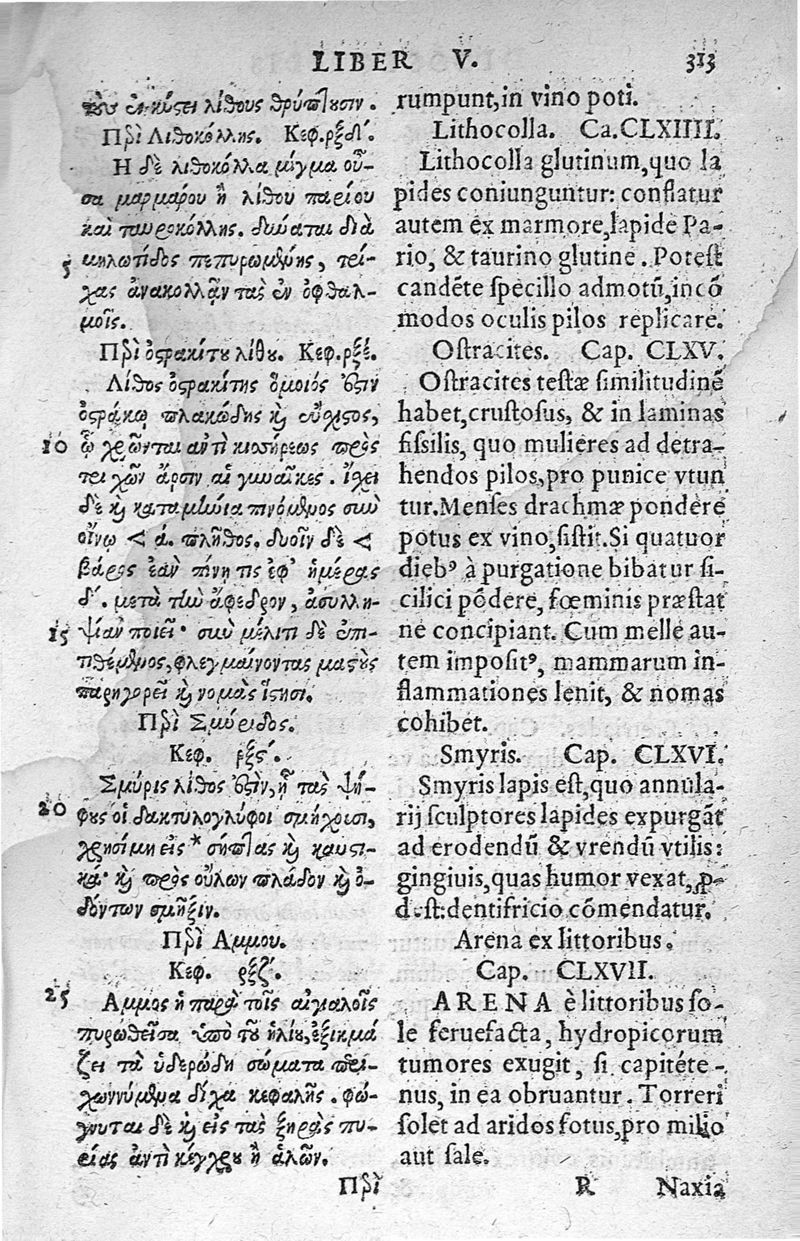 LIBER V. 313
τοὺς ἐν κύστει λίθους θρύπτουσιν.
Περὶ Λιθοκόλλης. Κεφ. ρξδʹ.
Η δὲ λιθοκόλλα μίγμα οὖ-
σα μαρμάρου ἢ λίθου παρίου
καὶ ταυροκόλλης. δύναται διὰ
5 μηλωτίδος πεπυρωμένης, τρί-
χας ἀνακολλᾶν τὰς ἐν ὀφθαλ-
μοῖς.
Περὶ ὀστρακίτου λίθου. Κεφ. ρξέ.
Λίθος ὀστρακίτης ὅμοιός ἐστιν
ὀστράκῳ πλακώδης καὶ εὔσχιστος,
10 ᾧ χρῶνται αντὶ κισσήρεως πρὸς
τριχῶν ἄρσιν αἱ γυναῖκες. ἴσχει
δὲ καὶ καταμήνια πινόμενος σὺν
οἴνῳ < ά. πλῆθος. δυοῖν δὲ <
βάρος ἐὰν πίνῃ τις ἐφ' ἡμέρας
δʹ. μετὰ τὴν ἄφεδρον, ἀσυλλη-
15 ψίαν ποιεῖ· σὺν μέλιτι δὲ ἐπι-
τιθέμενος, φλεγμαίνοντας μαστοὺς
παρηγορεῖ καὶ νομὰς ἵστησι.
Περὶ Σμύριδος.
Κεφ. ρξςʹ.
Σμύρις λίθος ἐστὶν, ᾗ τὰς ψή-
20 φους οἱ δακτυλογλύφοι σμήχουσι,
χρησίμη εἰς * σηπτὰς καὶ καυστι-
κά· καὶ πρὸς οὔλων πλάδον καὶ ὀ-
δόντων σμῆξιν.
Περὶ Αμμου.
Κεφ. ρξζʹ.
25 Αμμος ἡ παρὰ τοῖς αἰγιαλοῖς
πυρωθεῖσα ὑπὸ τοῦ ἡλίου, ἐξικμά
ζει τὰ ὑδερώδη σώματα περι-
χωννύμενα δίχα κεφαλῆς. φώ-
γνυται δὲ καὶ εἰς τὰς ξηρὰς πυ-
ρίας ἀντὶ κέγχρου ἢ ἁλῶν.
Περὶ
rumpunt, in vino poti.
Lithocolla. Ca. CLXIIII.
Lithocolla glutinum, quo la
pides coniunguntur: conflatur
autem ex marmore, lapide Pa-
rio, & taurino glutine. Potest
candēte specillo admotū, incō
modos oculis pilos replicare.
Ostracites. Cap. CLXV.
Ostracites testæ similitudinē
habet, crustosus, & in laminas
fissilis, quo mulieres ad detra-
hendos pilos, pro punice vtun
tur. Menses drachmæ pondere
potus ex vino, sistit. Si quatuor
diebꝰ à purgatione bibatur si-
cilici pōdere, fœminis præstat
ne concipiant. Cum melle au-
tem impositꝰ, mammarum in-
flammationes lenit, & nomas
cohibet.
Smyris. Cap. CLXVI.
Smyris lapis est, quo annula-
rij sculptores lapides expurgāt
ad erodendū & vrendū vtilis:
gingiuis, quas humor vexat, ꝓ-
dest: dentifricio cōmendatur.
Arena ex littoribus.
Cap. CLXVII.
ARENA è littoribus so-
le feruefacta, hydropicorum
tumores exugit, si capitéte-
nus, in ea obruantur. Torreri
solet ad aridos fotus, pro milio
aut sale.
R Naxia